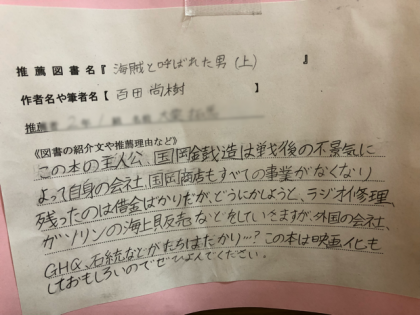 推薦図書名『海賊と呼ばれた男(上)』
作者名や筆者名【百田尚樹】
推薦者 2年1組 名前
《図書の紹介文や推薦理由など》
この本の主人公、国岡鐵造は戦後の不景気に
よって自身の会社、国岡商店もすべての事業がなくなり
残ったのは借金ばかりだが、どうにかしようと、ラジオイ修理、
ガソリンの海上販売などをしていきますが、外国の会社、
GHQ、石統などがたちはだかり…?この本は映画イ化も
しておもしろいのでぜひよんでください。